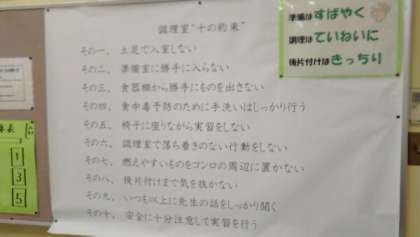 調理室"十の約束"
その一、土足で入室しない
その二、準備室に勝手に入らない
その三、食器棚から勝手にものを出さない
その四、食中毒予防のために手洗いはしっかり行う
その五、椅子に座りながら実習をしない
その六、調理室で落ち着きのない行動をしない
その七、燃えやすいものをコンロの周辺に置かない
その八、後片付けまで気を抜かない
その九、いつも以上に先生の話をしっかり聞く
その十、安全に十分注意して実習を行う
準備はすばやく
調理はていねいに
後片付けはきっちり
1
3
5